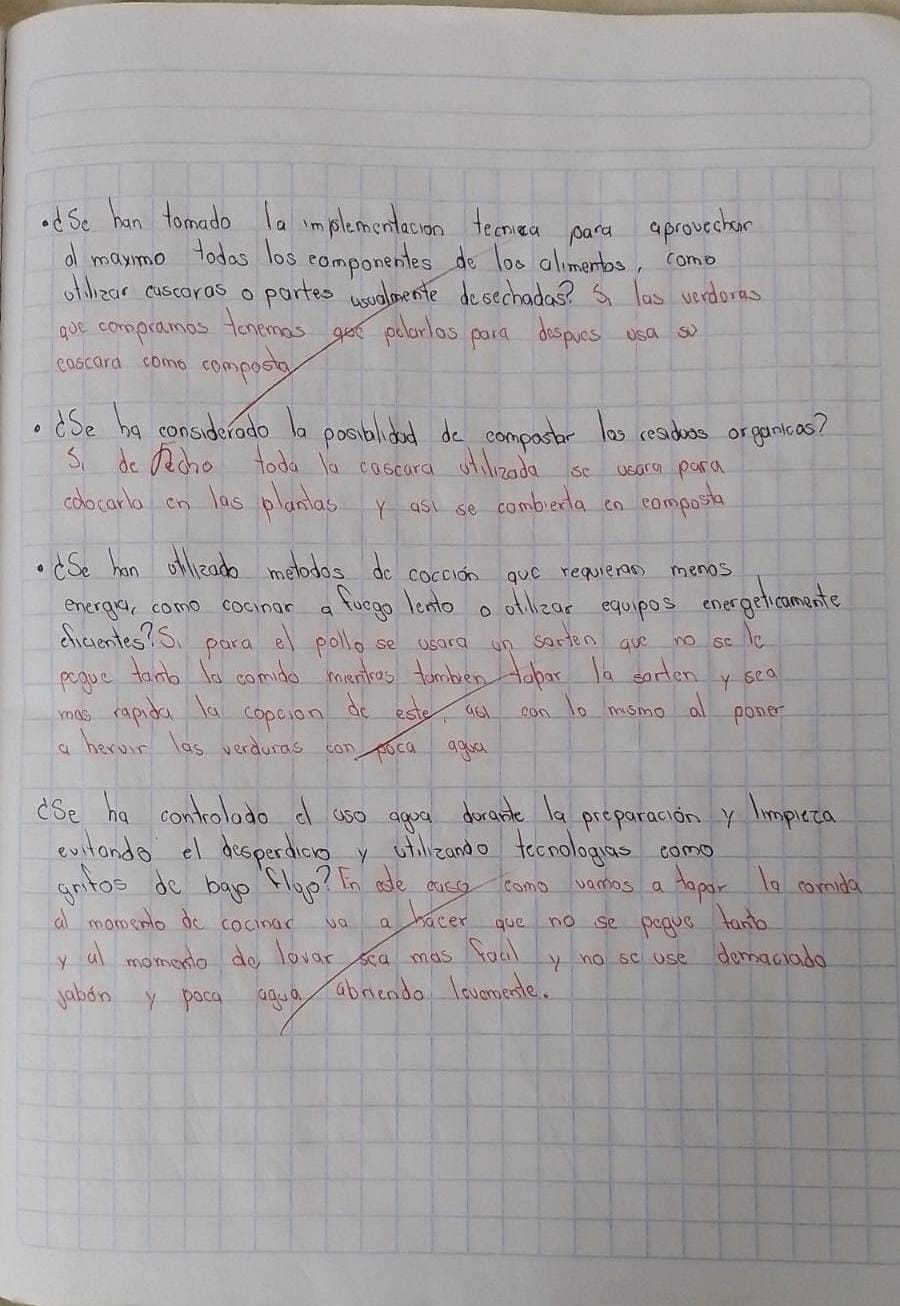 • ¿Se han tomado la implementacion tecnica para aprovechar
al maximo todos los componentes de los alimentos, como
utilizar cascaras o partes usualmente desechadas? Si las verdoras
que compramos tenemos que pelarlas para despues usa su
cascara como composta
• ¿Se ha considerado la posiblidad de compostar los residuos organicas?
Si de hecho toda la cascara utilizada se usara para
colocarla en las plantas y asi se combierta en composta
• ¿Se han utilizado metodos de cocción que requieran menos
energia, como cocinar a fuego lento o utilizar equipos energeticamente
eficientes? Si para el pollo se usara un sarten que no se le
pegue tanto la comida mientras tamben tapar la sarten y sea
mas rapida la copcion de este, asi con lo mismo al poner
a hervir las verduras con poca agua
¿Se ha controlado el uso agua durante la preparación y limpieza
evitando el desperdicio y utilizando tecnologias como
grifos de bajo flujo? En este caso como vamos a tapar la comida
al momento de cocinar va a hacer que no se pegue tanto
y al momento de lavar sea mas facil y no se use demaciado
jabón y poca agua abriendo levemente.